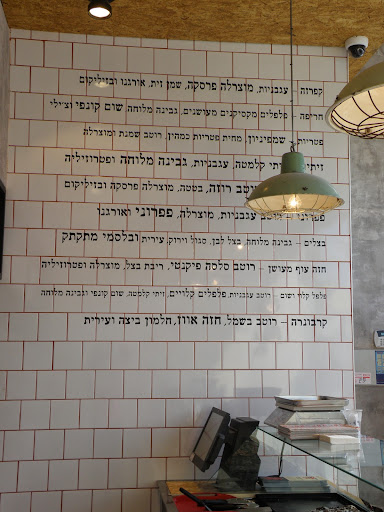 קפרזה – עגבניות, מוצרלה פרסקה, שמן זית, אורגנו ובזיליקום
חריפה – פלפלים מקסיקנים מעושנים, גבינה מלוחה שום קונפי וצ׳ילי
פטריות – שמפיניון, מחית פטריות כמהין, רוטב שמנת ומוצרלה
קלמטה, עגבניות, גבינה מלוחה ופטרוזיליה
רוטב רוזה, בטטה, מוצרלה פרסקה ובזיליקום
פפרוני – רוטב עגבניות, מוצרלה, פפרוני ואורגנו
בצלים – גבינה מלוחה, בצל לבן, סגול וירוק, עירית ובלסמי מתקתק
חזה עוף מעושן – רוטב סלסה פיקנטי, ריבת בצל, מוצרלה ופטרוזיליה
פלפל קלוי ושום – רוטב עגבניות, פלפלים קלויים, זיתי קלמטה, שום קונפי וגבינה מלוחה
קרבונרה – רוטב בשמל, חזה אווז, חלמון ביצה ועירית